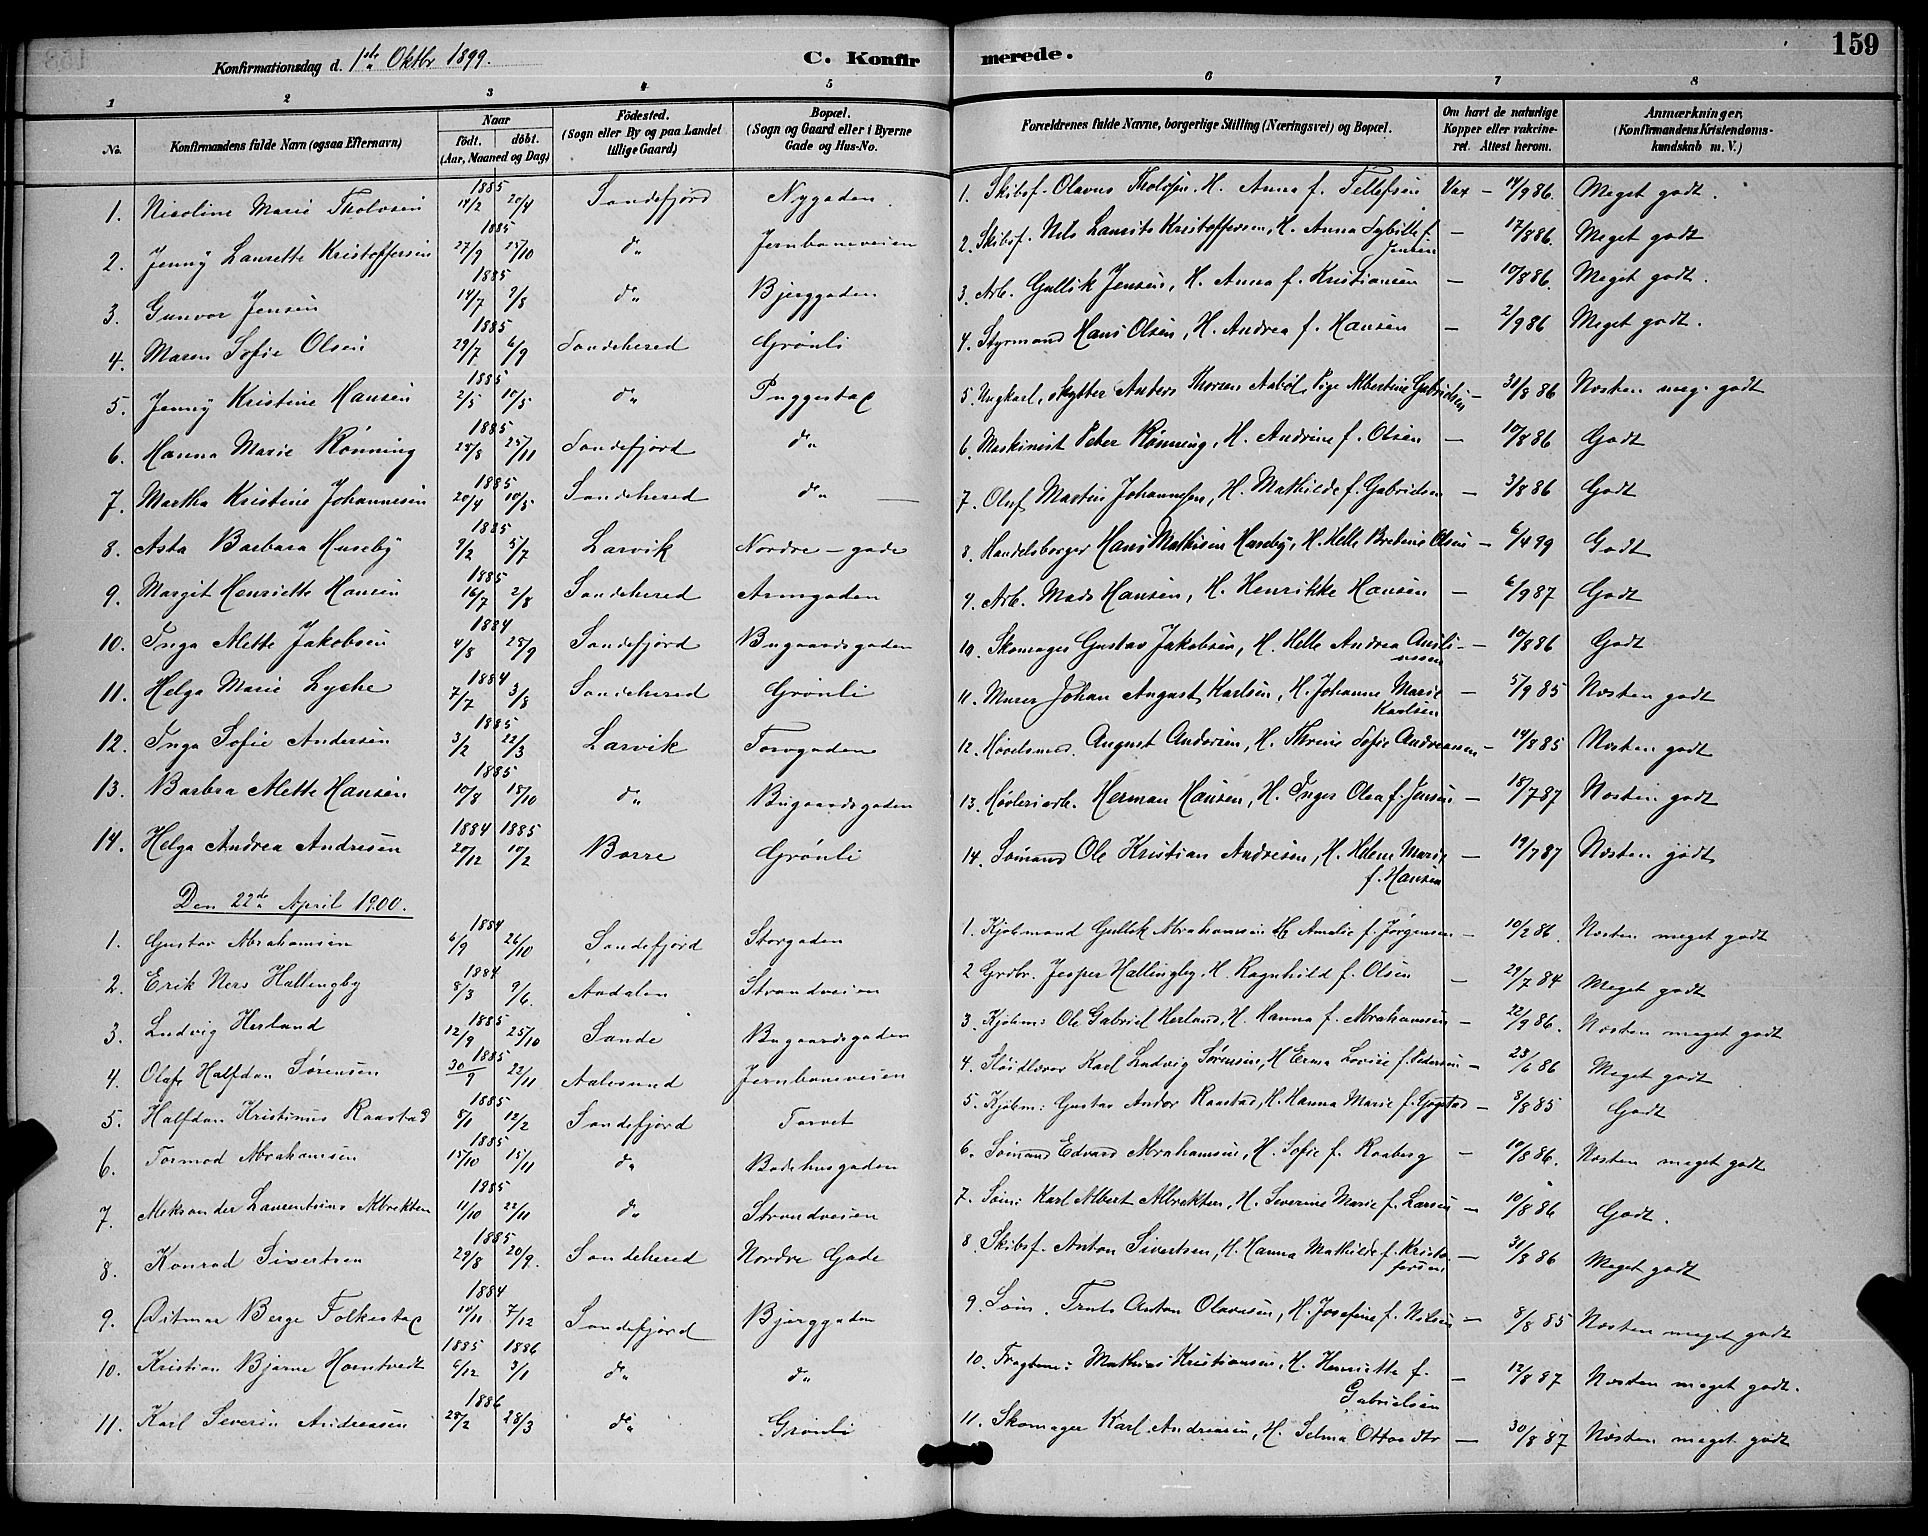 Konfirmationsdag d. 1ste Oktbr 1899.
C. Konfirmerede.
159
1 2 3 4 5 6 7 8
No.
Konfirmandens fulde Navn (ogsaa Efternavn)
Naar
födt. döbt.
(Aar, Maaned og Dag)
Födested.
(Sogn eller By og paa Landet
tillige Gaard)
Bopæl.
(Sogn og Gaard eller i Byerne
Gade og Hus-No.
Forældrenes fulde Navne, borgerlige Stilling (Næringsvei) og Bopæl.
Om havt de naturlige
Kopper eller vakcine-
ret. Attest herom.
Anmærkninger.
(Konfirmandens Kristendoms-
kundskab m. V.)
1. Nicoline Marie Tholvsen 1885 14/2 20/4 Sandefjord Nygaden. 1. Skibsf. Olavus Tholvsen, H. Anna f. Tellefsen Vax – 14/9 86. Meget godt.
2. Jenny Laurette Kristoffersen 1885 27/9 25/10 do. Jernbaneveien 2. Skibsf. Nils Laurits Kristoffersen, H. Anna Sybille f. Jensen – 17/8 86. Meget godt
3. Gunvor Jensen 1885 14/7 9/8 do. Bjerggaden 3. Arb. Gullik Jensen, H. Anna f. Kristiansen – 10/8 86. Meget godt.
4. Maren Sofie Olsen 1885 29/7 6/9 Sandehered Grönli 4. Styrmand Hans Olsen, H. Andrea f. Hansen – 2/9 86 Meget godt.
5. Jenny Kristine Hansen 1885 2/5 10/5 do. Puggestad 5. Ungkarl, Skytter Anders Thorsen Aaböl, Pige Albertine Gabrielsen – 31/8 86 Næsten meg. godt
6. Hanna Marie Rönning 1885 28/8 25/11 Sandefjord do. 6. Maskinist Peter Rönning, H. Andrine f. Olsen – 10/8 86 Godt
7. Martha Kristine Johannesen 1885 20/4 10/5 Sandehered do. 7. Oluf Martin Johannesen, H. Mathilde f. Gabrielsen – 3/8 86 Godt
8. Asta Barbara Huseby 1885 9/2 5/7 Larvik Nordre-gade 8. Handelsborger Hans Mathisen Huseby, H. Helle Bretine Olsen – 6/4 99 Godt
9. Margit Henriette Hansen 1885 16/7 2/8 Sandehered Armgaden 9. Arb. Mads Hansen, H. Henrikke Hansen – 6/9 87 Godt
10. Inga Mette Jakobsen 1884 4/8 28/9 Sandefjord Bugaardsgaden 10. Skomager Gustav Jakobsen, H. Helle Andrea – 10/8 86 Godt
11. Helga Marie Lyche 1884 7/7 3/8 Sandehered Grönli 11. Murer Johan August Karlsen, H. Johanne Marie Karlsen – 5/9 85 Næsten godt
12. Inga Sofie Andersen 1885 3/2 22/3 Larvik Torvgaden 12. August Andersen, H. Thrine Sofie Andreassen – 14/8 85 Næsten godt
13. Barbra Mette Hansen 1885 10/8 18/10 do. Bugaardsgaden 13. Hövleriarb. Herman Hansen, H. Inger Olea f. Jensen – 18/7 87 Næsten godt
14. Helga Andrea Andresen 1884 1885 20/12 10/2 Borre Grönli 14. Sömand Ole Kristian Andresen, H. Helene Marie f. Hansen – 19/7 87 Næsten godt
Den 22de April 1900.
1. Gustav Abrahamsen 1884 6/9 26/10 Sandefjord Storgaden 1. Kjöbmand Gullik Abrahamsen H. Amalie f. Jörgensen – 10/2 86. Næsten meget godt
2. Erik Ners Hallingby 1884 8/3 9/6. Aadalen Strandveien 2 Grdbr. Jesper Hallingby, H. Ragnhild f. Olsen – 29/7 84 Meget godt
3. Ludvig Herland 1885 12/9 25/10 Sande Bugaardsgaden 3. Kjöbm: Ole Gabriel Herland, H. Hanna f. Abrahamsen – 22/9 86. Næsten meget godt
4. Olaf Halfdan Sörensen 1885 30/9 22/11 Aalesund Jernbaneveien 4. Slöidlærer Karl Ludvig Sörensen, H. Erma Lovise f. Pedersen – 23/6 86 Meget godt
5. Halfdan Kristinus Raastad 1885 5/1 12/2 Sandefjord Torvet 5. Kjöbm: Gustav Andor Raastad, H. Hanna Marie f. Gogstad – 8/8 85 Godt
6. Tormod Abrahamsen 1885 15/10 15/11 do. Badehusgaden 6. Sömand Edvard Abrahamsen, H. Sofie f. Raaberg – 10/8 86. Næsten meget godt
7. Aleksander Laurentius Albrektsen 1885 11/10 22/11 do. Strandveien 7. Söm: Karl Albert Albrektsen, H. Severine Marie f. Larsen – 10/8 86 Godt.
8. Konrad Sivertsen 1885 29/8 20/9. Sandehered Nordre Gade 8. Skibsf. Anton Sivertsen, H. Hanna Mathilde f. Kristofersen – 31/8 86 Meget godt
9. Ditmar Berge Folkestad 1884 10/11 7/12 Sandefjord Bjerggaden 9. Söm. Truls Anton Olavesen, H. Josefine f. Nilsen – 8/8 85 Næsten meget godt
10. Kristian Bjarne Hamtvedt 1885 1886 6/12 3/1 do. do. 10. Fragtem: Mathias Kristiansen, H. Henriette f. Gabrielsen – 12/8 87 Næsten meget godt.
11. Karl Severin Andreasen 1886 28/2 28/3 do. Grönli 11. Skomager Karl Andreasen, H. Selma Ottosdtr – 30/8 87 Næsten meget godt